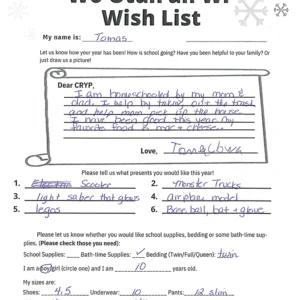 Wish List
My name is: Tomas
Let us know how your year has been! How is school going? Have you been helpful to your family? Or
just draw us a picture!
Dear CRYP,
I am homeschooled by my mom &
dad. I help by taking out the trash
and help mom pick up the house.
I have been good this year. My
favorite food is mac + cheese.
Love,
Please tell us what presents you would like this year!
1. Scooter 2. Monster Trucks
3. light saber that glows 4. Airplane model
5. legos 6. Baseball, bat + glove
Please let us know whether you would like school supplies, bedding or some bath-time sup-
plies. (Please check those you need):
School Supplies: Bath-time Supplies: ✓ Bedding (Twin/Full/Queen): twin
I am a boy girl (circle one) and I am 10 years old.
My sizes are:
Shoes: 4.5 Underwear: 10 Pants: 12 slim